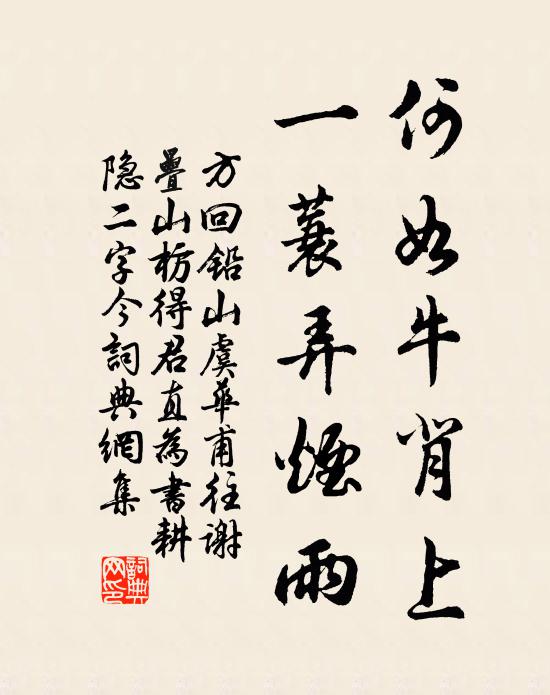 何如牛背上
一蓑弄煙雨
方回鉛山虞華甫往谢
疊山枋得君直為書耕
隐二字今詞典網集
詞典
网印